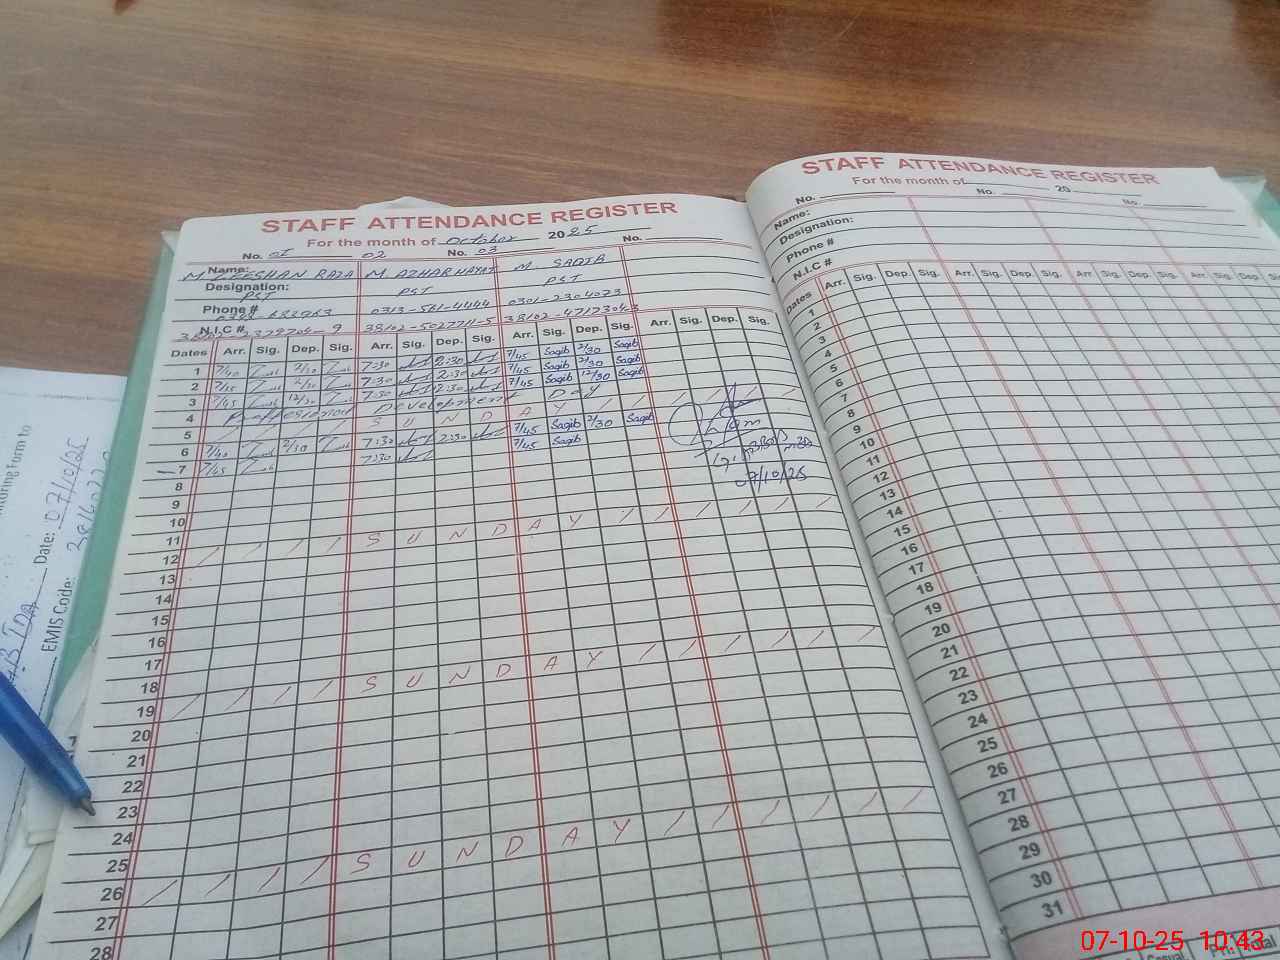 STAFF ATTENDANCE REGISTER
For the month of October 2025
No. 01 02 No. 03 No.
Name: M ZEESHAN RAZA M AZHAR HAYAT M. SAQIB
Designation: PST PST PST
Phone # 0313-561-4444 0301-2304073
N.I.C # 38102-5027711-5
Dates Arr. Sig. Dep. Sig. Arr. Sig. Dep. Sig. Arr. Sig. Dep. Sig. Arr. Sig. Dep. Sig.
1 7/40 2/30 7:30 2:30 7/45 Saqib 2/30 Saqib
2 7/45 2/30 7:30 2:30 7/45 Saqib 2/30 Saqib
3 7/45 12/30 7:30 7/45 Saqib 12/30 Saqib
4 Professional Development Day
5 / / / / S U N D A Y / / / / /
6 7/40 2/30 7:30 2:30 7/45 Saqib 2/30 Saqib
7 7/45 7:30 7/45 Saqib
07/10/25
8
9
10
11
12 / / / / S U N D A Y / / / / /
13
14
15
16
17
18
19 / / / / S U N D A Y / / / / / /
20
21
22
23
24
25
26 / / / / S U N D A Y / / / / / /
27
28
STAFF ATTENDANCE REGISTER
For the month of 20
No. No. No.
Name:
Designation:
Phone #
N.I.C #
Dates Arr. Sig. Dep. Sig. Arr. Sig. Dep. Sig. Arr. Sig. Dep. Sig.
1
2
3
4
5
6
7
8
9
10
11
12
13
14
15
16
17
18
19
20
21
22
23
24
25
26
27
28
29
30
31
Form to
Date: 07/10/25
EMIS Code:
07-10-25 10:43